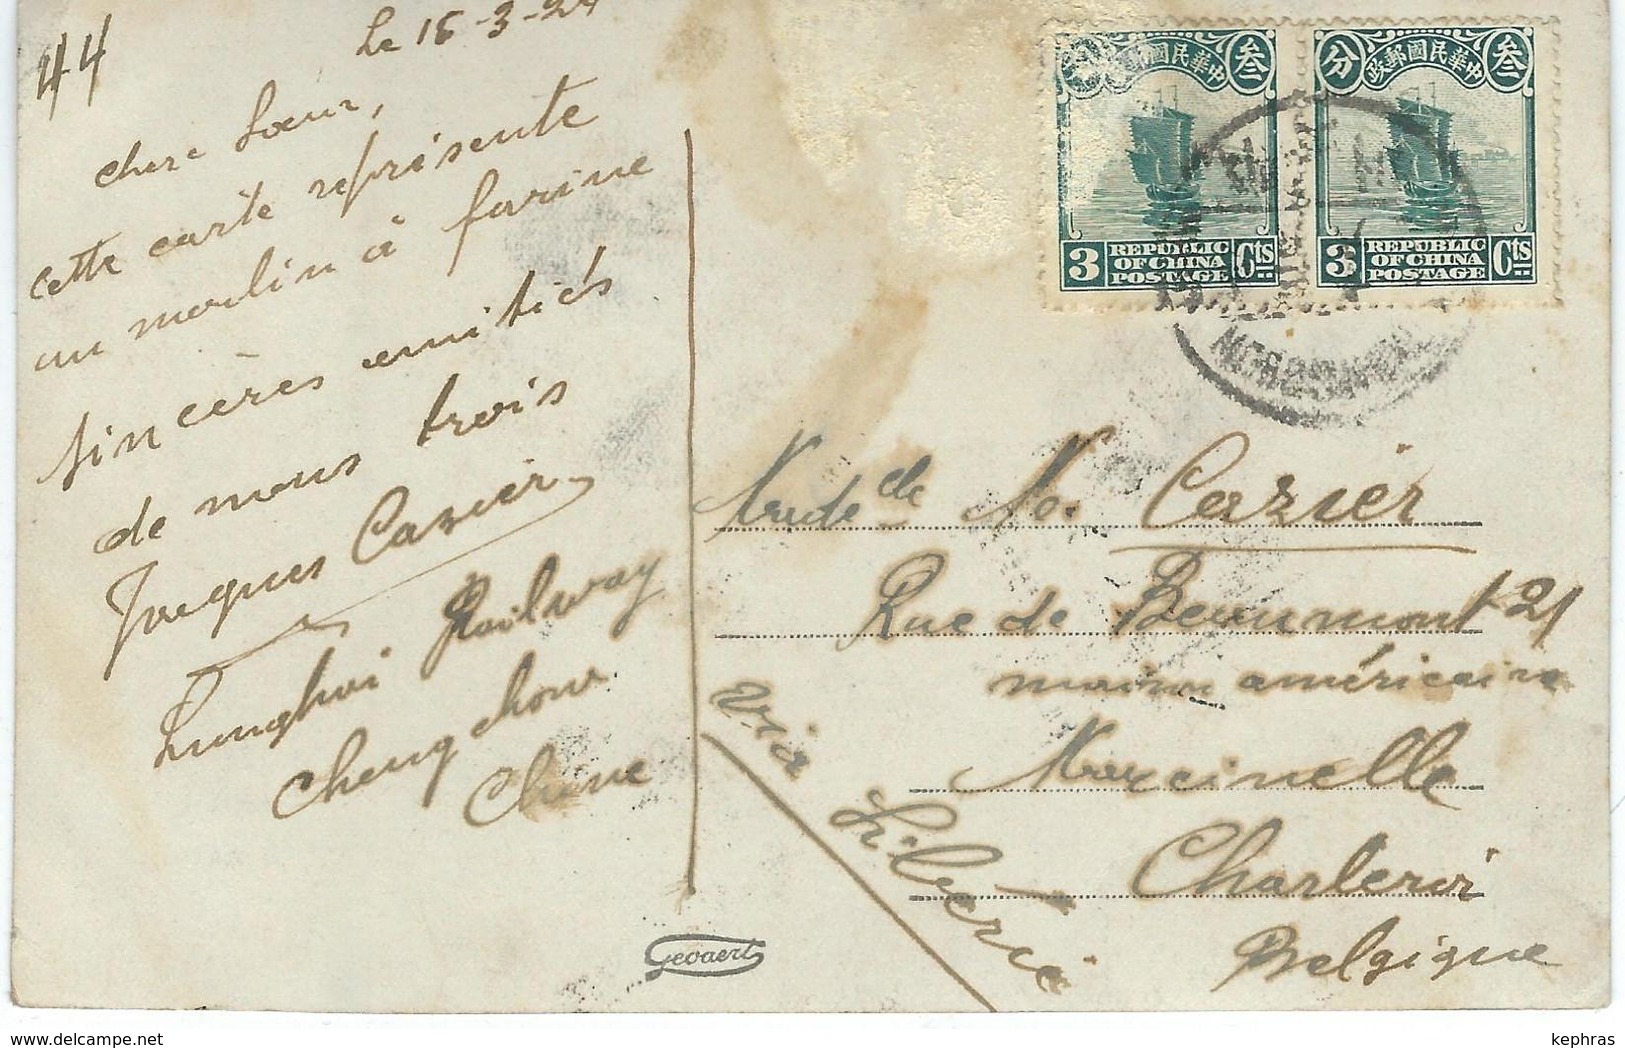 44
Le 16-3-24
Chère Soeur,
cette carte représente
un moulin à farine
Sincères amitiés
de nous trois
Jacques Cazier
Lunghai Railway
Chengchow
Chine
分 中華民國郵政 叁
3 REPUBLIC OF CHINA POSTAGE 3 Cts
中華民國郵政 叁
3 REPUBLIC OF CHINA POSTAGE Cts
de No. Cazier
Rue de Beaumont 21
maison américaine
Marcinelle
Charleroi
Belgique
via Sibérie
Gevaert
kephras